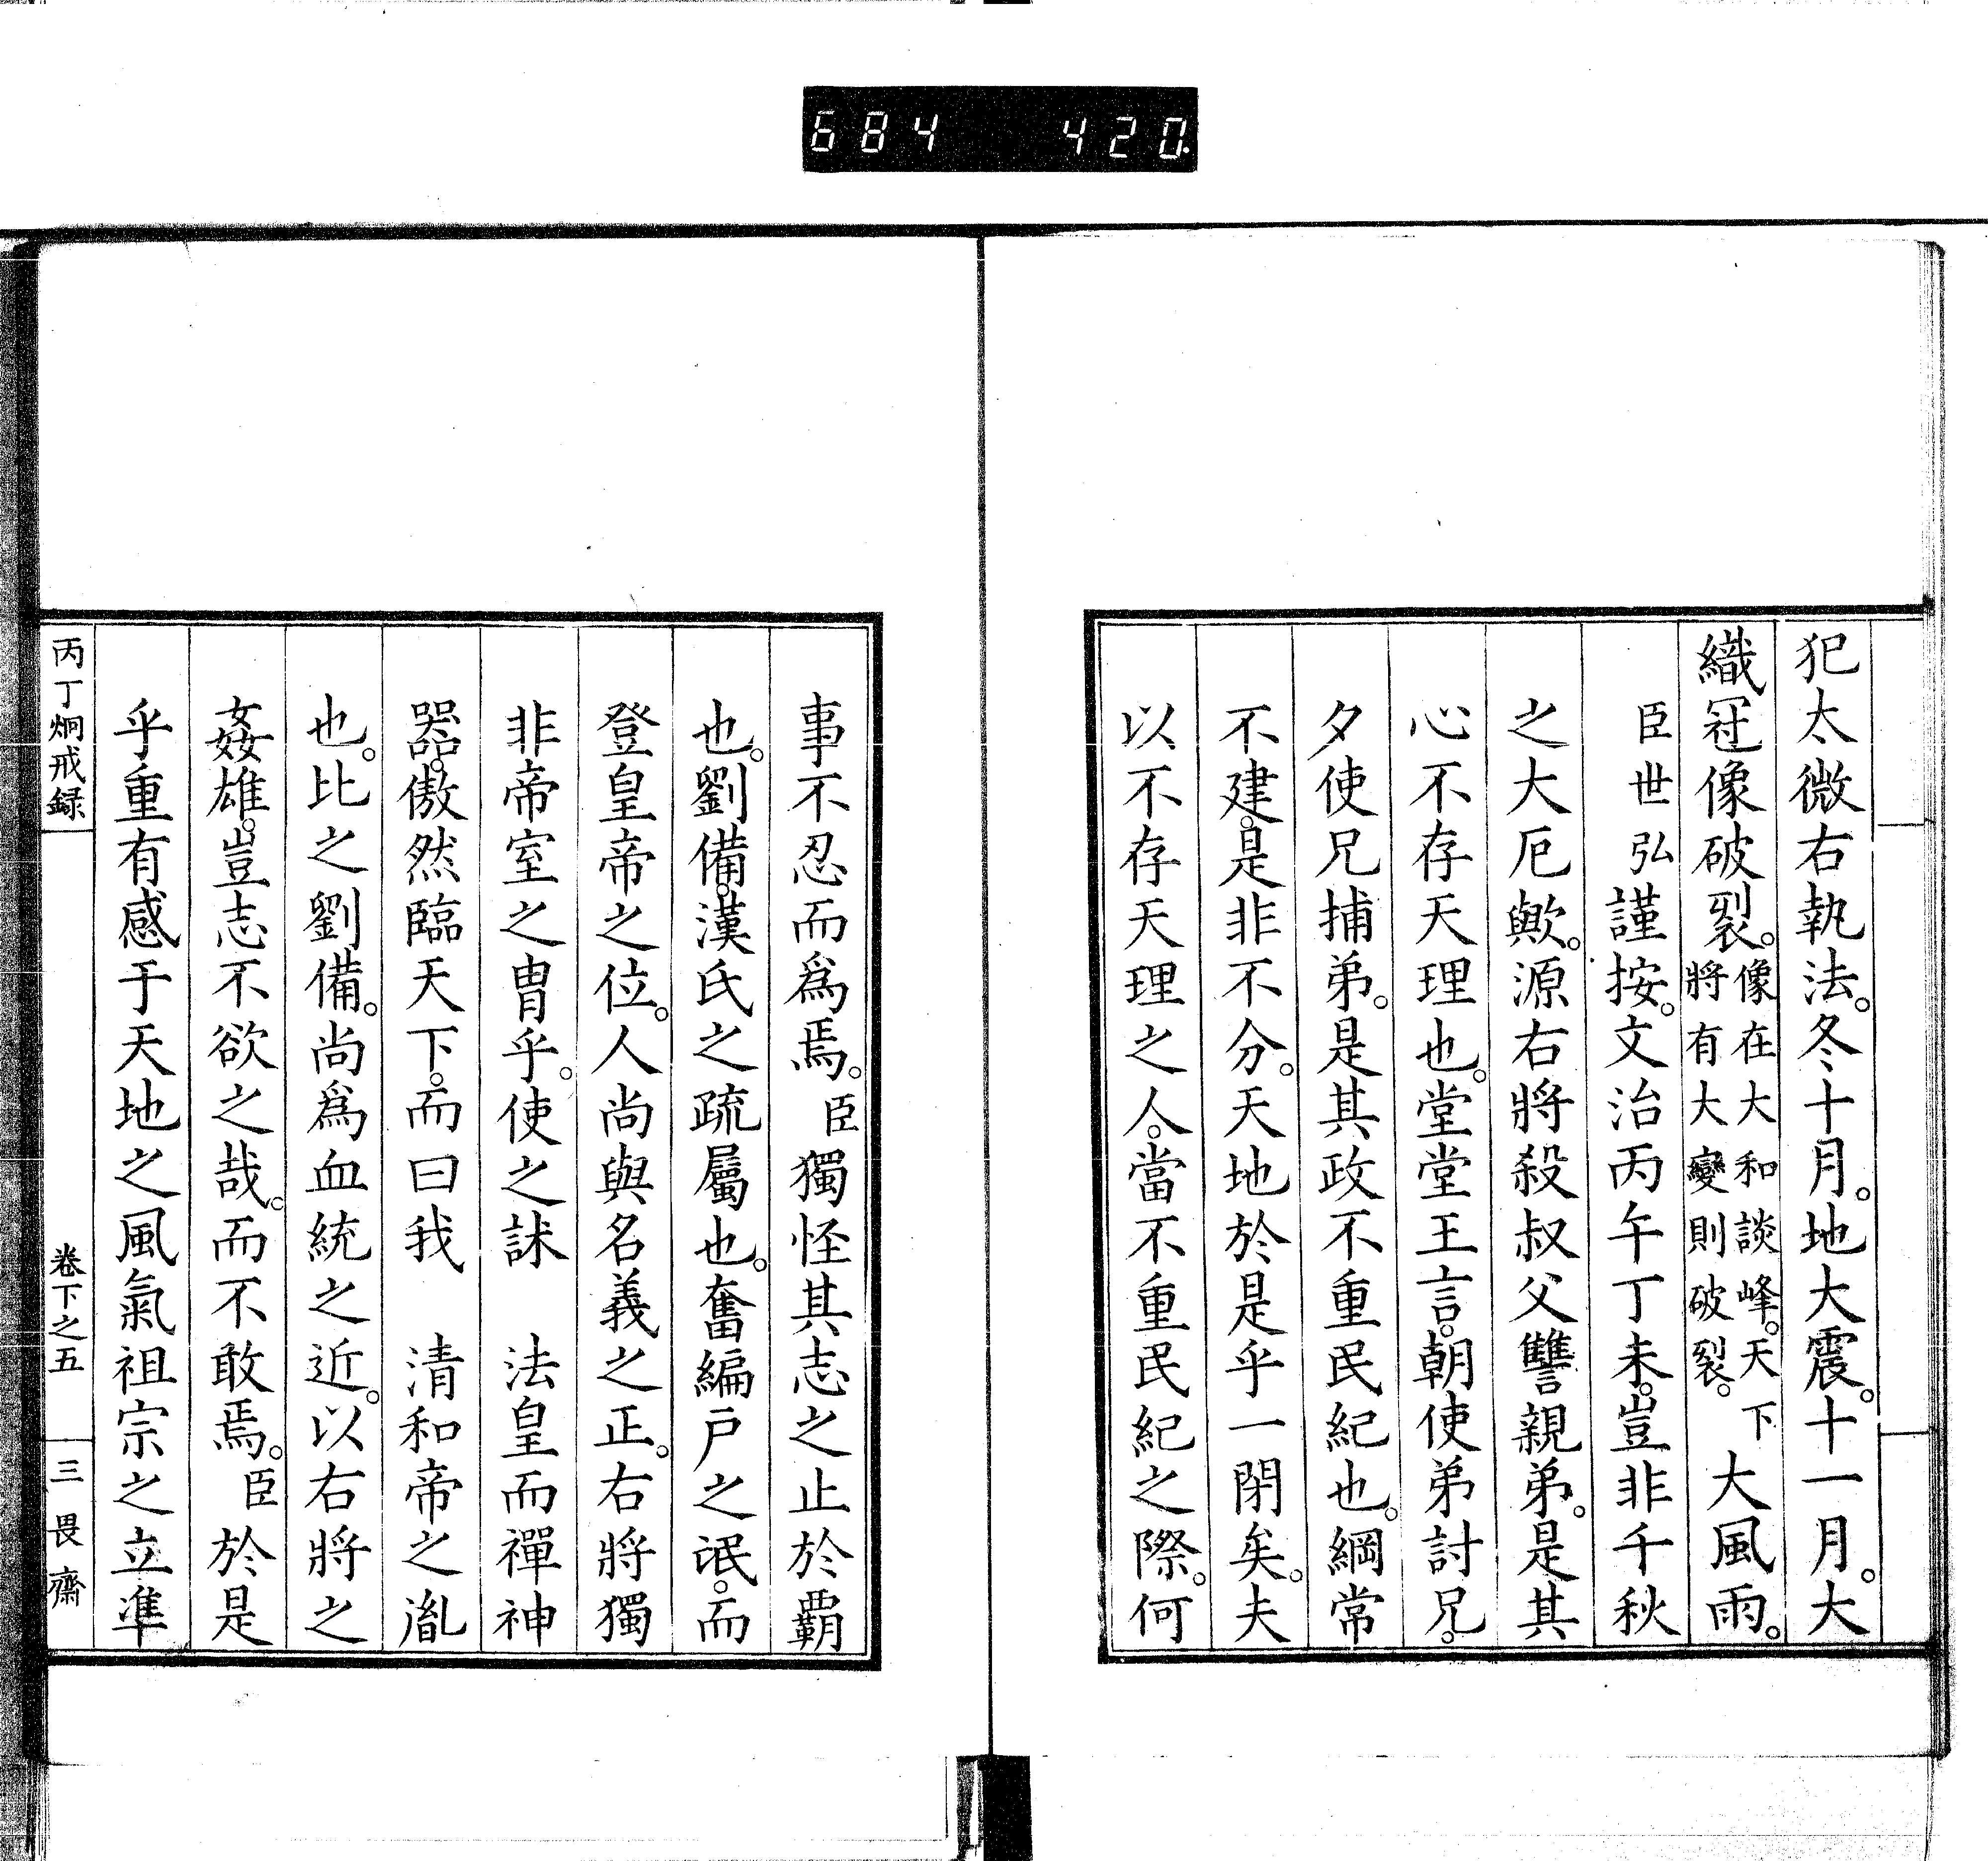 684 420
犯太微右執法。冬十月。地大震。十一月。大
織冠像破裂。像在大和談峰。天下將有大變則破裂。大風雨。
臣世弘謹按。文治丙午丁未。豈非千秋
之大厄歟。源右將殺叔父讐親弟。是其
心不存天理也。堂堂王言。朝使弟討兄。
夕使兄捕弟。是其政不重民紀也。綱常
不建。是非不分。天地於是乎一閉矣。夫
以不存天理之人。當不重民紀之際。何
事不忍而爲焉。臣獨怪其志之止於覇
也。劉備。漢氏之疏屬也。奮編戶之氓。而
登皇帝之位。人尚與名義之正。右將獨
非帝室之冑乎。使之訹 法皇而禪神
器。傲然臨天下。而曰我 清和帝之胤
也。比之劉備。尚爲血統之近。以右將之
姦雄。豈志不欲之哉。而不敢焉。臣於是
乎重有感于天地之風氣祖宗之立準
丙丁炯戒録 卷下之五 三畏齋